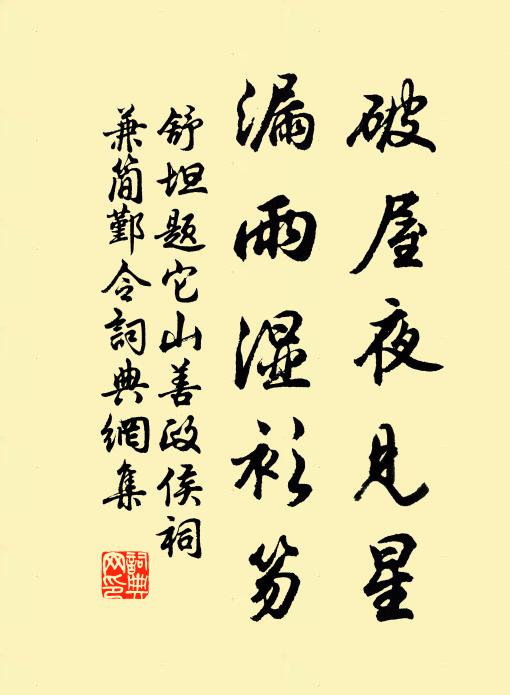 破屋夜見星
漏雨濕衫笏
舒坦题它山善政侯祠
兼简鄞令詞典網集
詞典網印